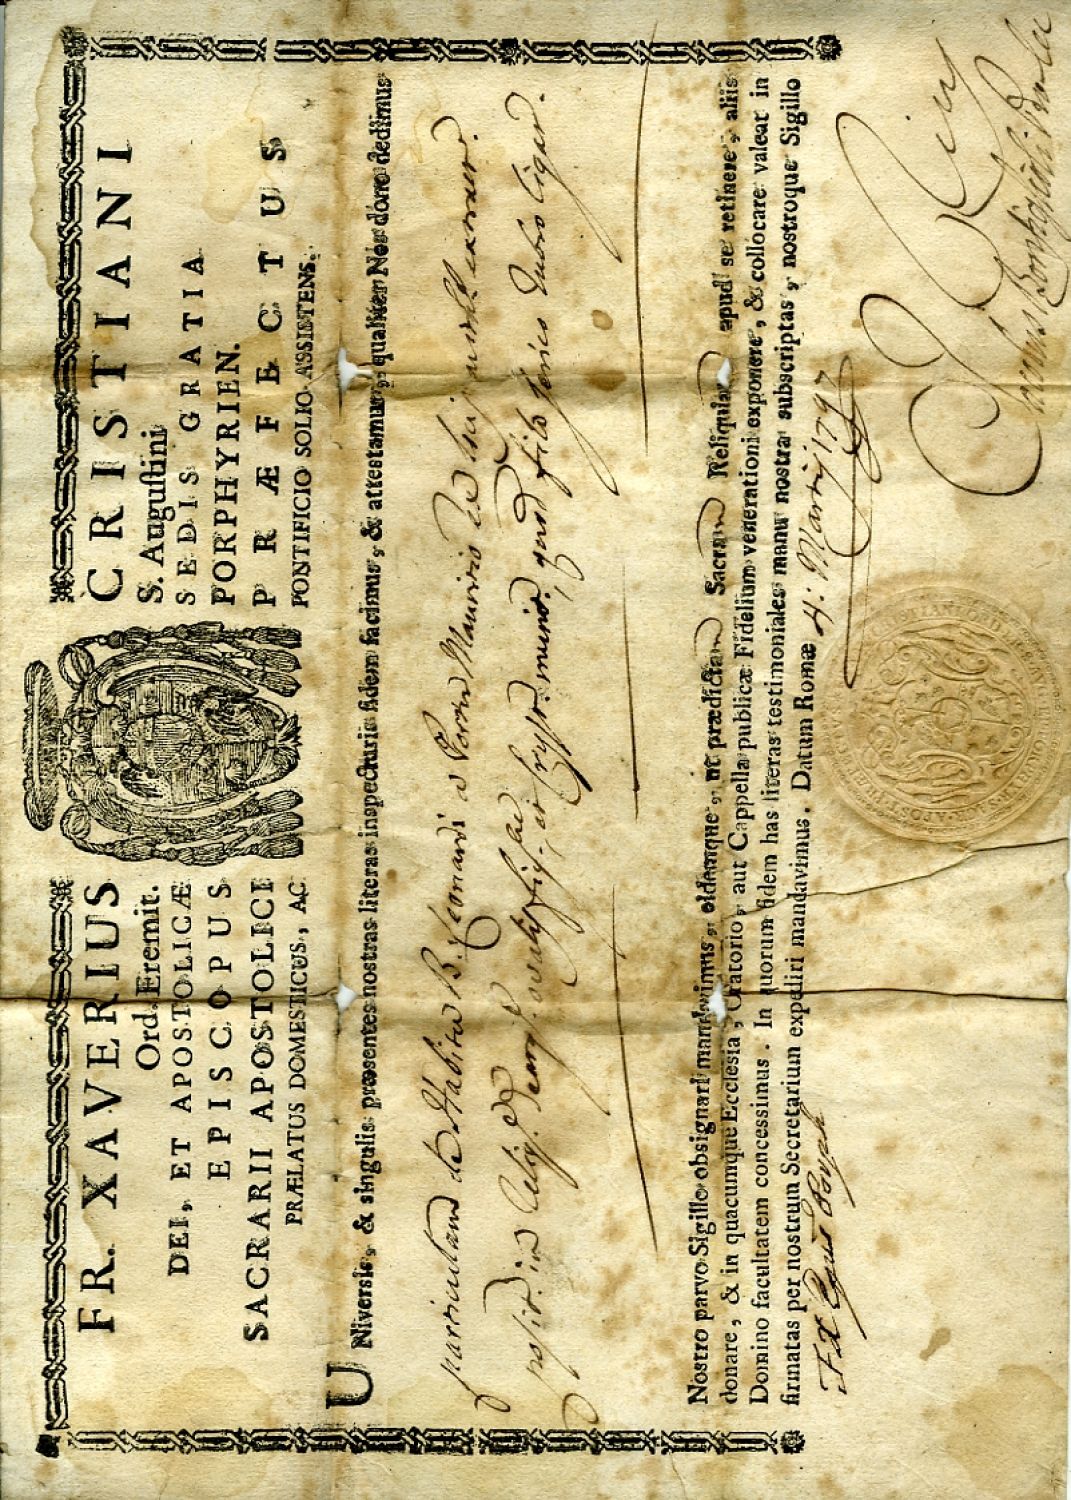 FR. XAVERIUS CRISTIANI
Ord. Eremit. S. Auguſtini
DEI, ET APOSTOLICÆ SEDIS GRATIA
EPISCOPUS PORPHYRIEN.
SACRARII APOSTOLICI PRÆFECTUS
PRÆLATUS DOMESTICUS, AC PONTIFICIO SOLIO ASSISTENS.
UNiversis, & singulis præsentes nostras literas inspecturis fidem facimus, & attestamur, qualiter Nos dono dedimus
particulam de Habitu B. Leonardi a Portu Mauritio
posit. in cryst. munit. quod filo serico rubro ligat.
Nostro parvo Sigillo obsignari mandavimus, eidemque, ut prædictam Sacram Reliquiam apud se retinere, aliis
donare, & in quacumque Ecclesia, Oratorio, aut Cappella publicæ Fidelium venerationi exponere, & collocare valeat in
Domino facultatem concessimus. In quorum fidem has literas testimoniales manu nostra subscriptas, nostroque Sigillo
firmatas per nostrum Secretarium expediri mandavimus. Datum Romæ 4: Martij 1797